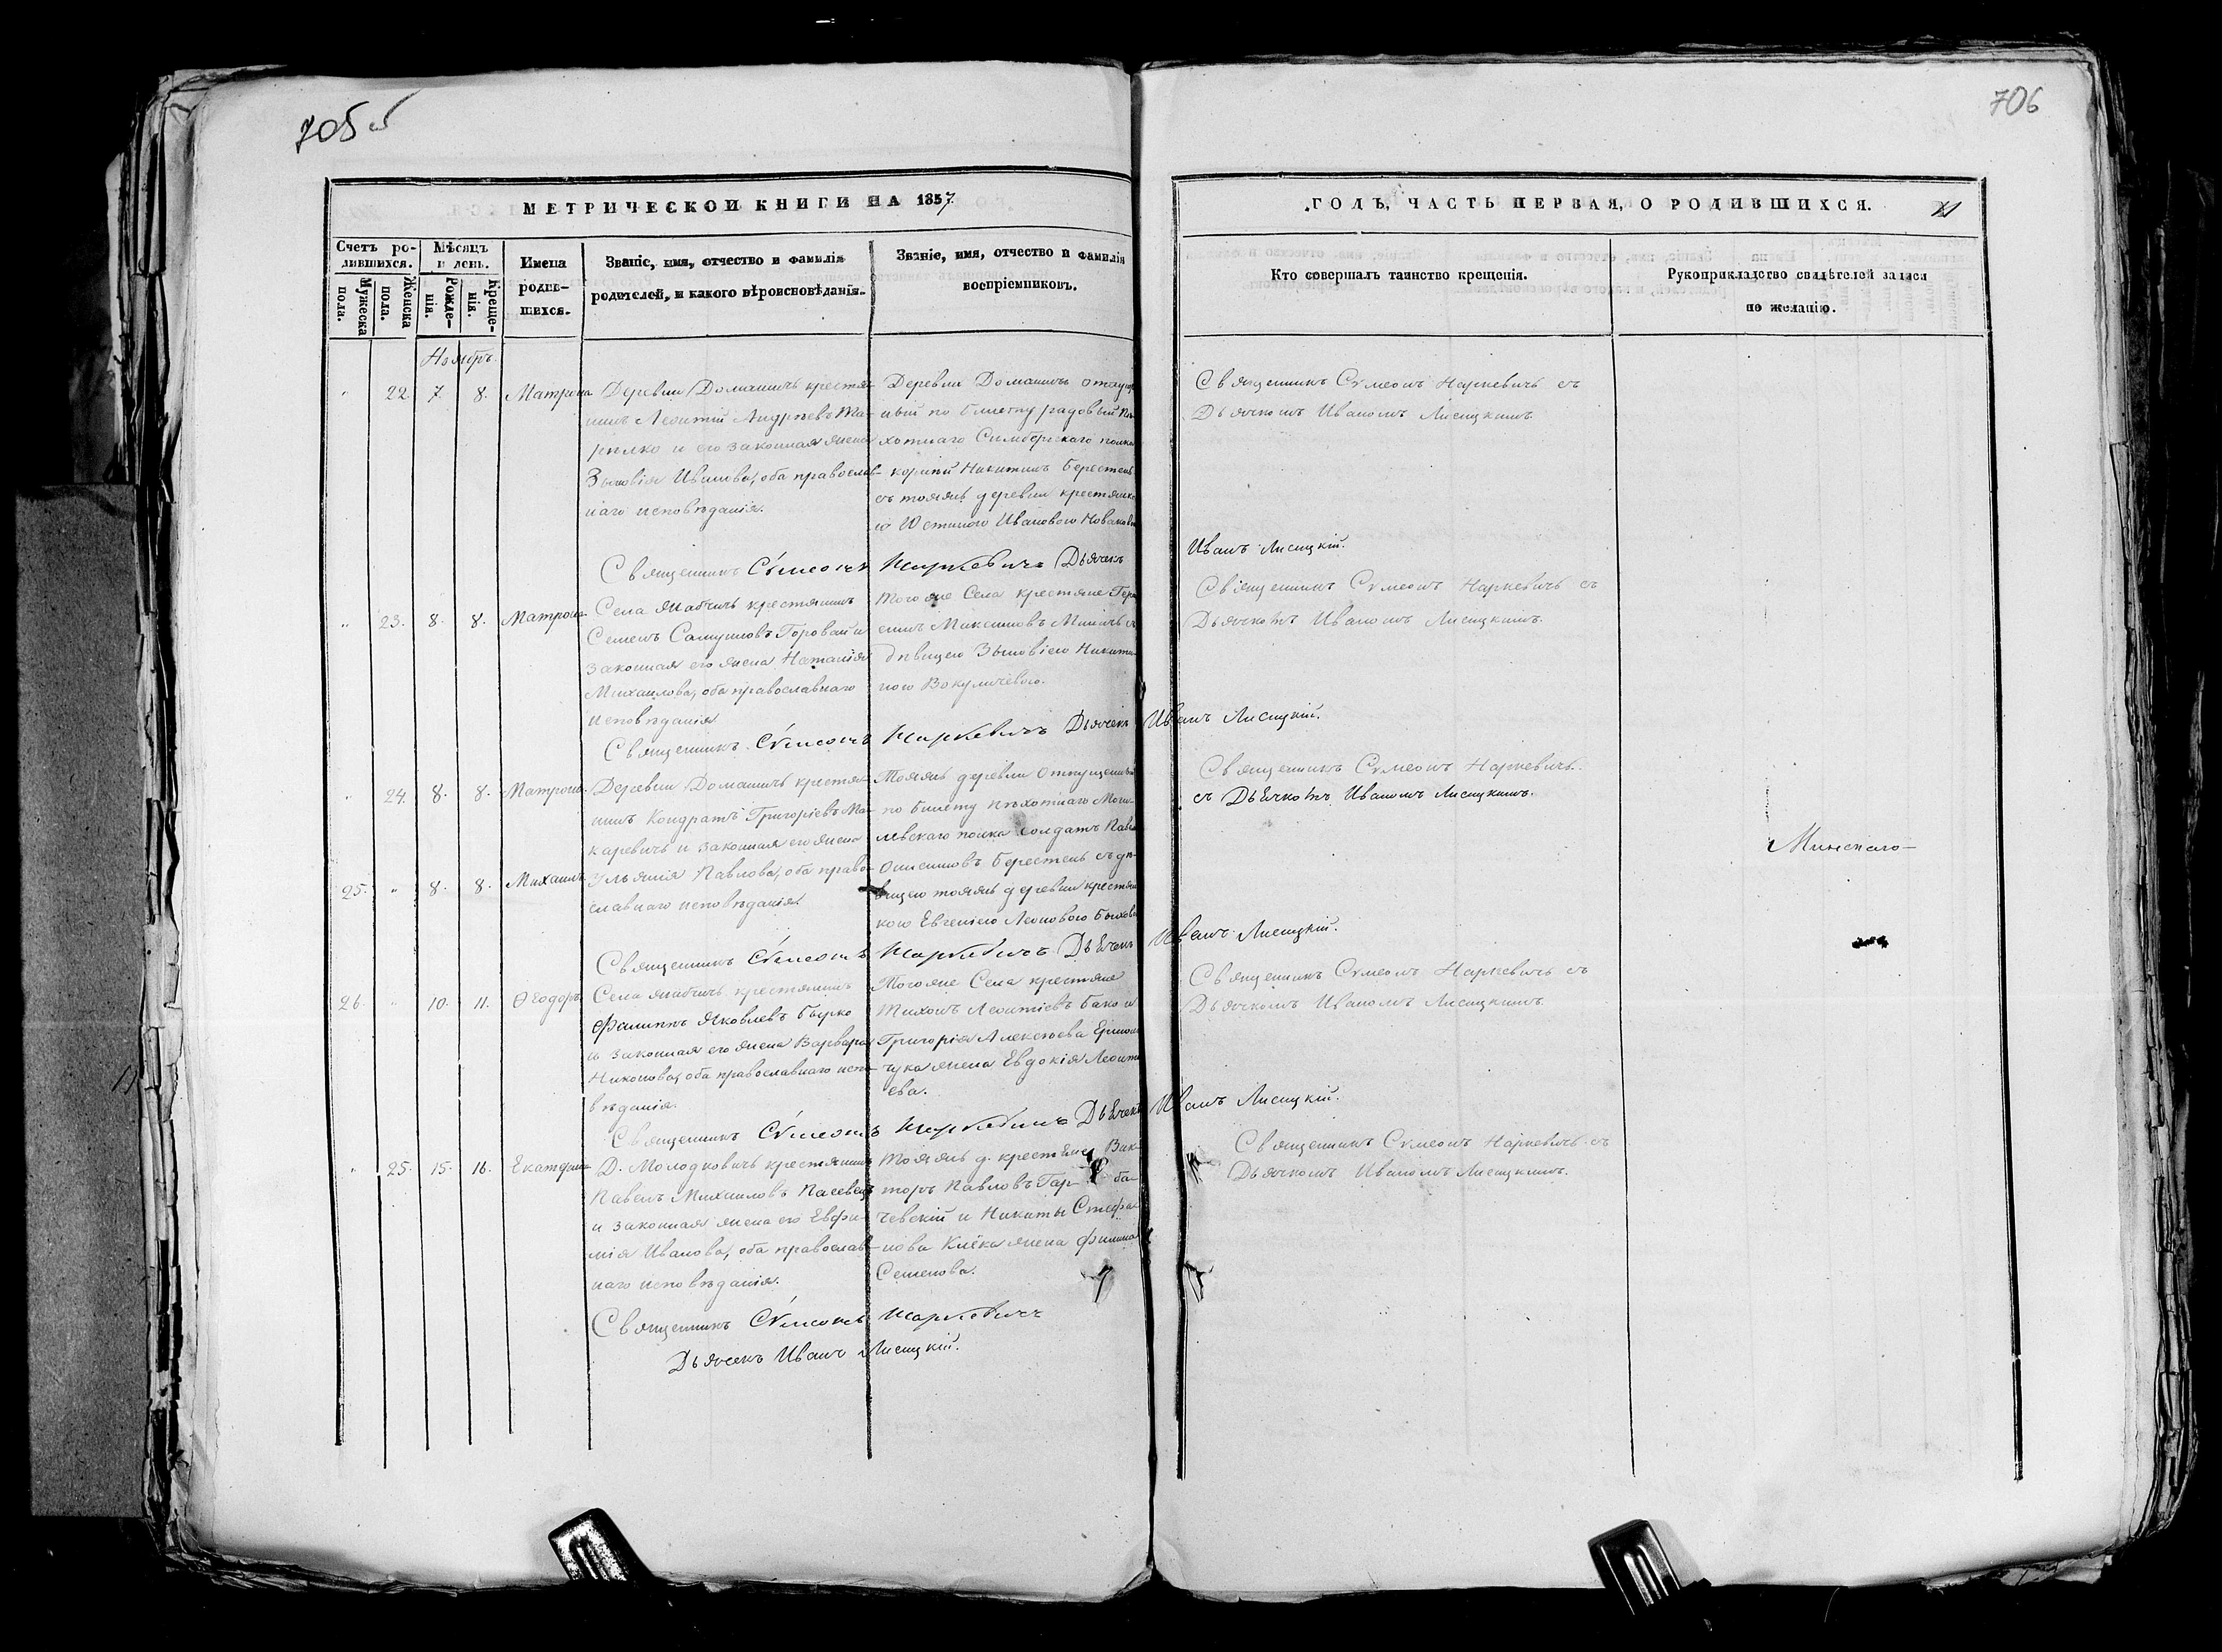 705 об
706
МЕТРИЧЕСКОЙ КНИГИ НА 1857.
Счетъ ро-
дившихся.
Мужеска
пола.
Женска
пола.
Мѣсяцъ
и день.
Рожде-
нія.
Креще-
нія.
Имена
родив-
шихся.
Званіе, имя, отчество и фамилія
родителей, и какого вѣроисповѣданія.
Званіе, имя, отчество и фамилія
воспріемниковъ.
Ноябрь.
" 22. 7. 8. Матрона
Деревни Доманичъ крестья-
нинъ Леонтій Андреевъ
и его законная жена
Зыновія Иванова, оба православ-
наго исповѣданія.
Деревни Доманичъ отпущен
ный по билету рядовый пѣ
хотнаго Симбирскаго полка
Никитинъ Берестень
съ тояжъ деревни крестьянко
ю Юстиною Ивановою
Священникъ Сѵмеонъ Наркевичъ Дьячекъ
" 23. 8. 8. Матрона.
Села Жабчичъ крестьянинъ
Семенъ Самуиловъ Горовый и
законная его жена Наталія
Михаилова, оба православнаго
исповѣданія
Тогоже Села крестьяне Гер
Максимовъ Миничъ съ
дѣвицею Зыновіею Никити-
ною Вакуличевою.
Священникъ Сѵмеонъ Наркевичъ Дьячекъ
" 24. 8. 8. Матрона.
25. " 8. 8. Михаилъ
Деревни Доманичъ крестья-
нинъ Кондратъ Григоріевъ Ма-
каревичъ и законная его жена
Ульянія Павлова, оба право-
славнаго исповѣданія
Тояжъ деревни отпущенный
по билету пѣхотнаго Моги-
левскаго полка солдатъ Павелъ
Онисимовъ Берестень съ дѣ-
вицею тояжъ деревни крестьян
кою Евгеніею Леоновою
Священникъ Сѵмеонъ Наркевичъ Дьячекъ
26. " 10. 11. Ѳеодоръ.
Села Жабчичъ крестьянинъ
Филиппъ Яковлевъ Бырко
и законная его жена Варвара
Никонова, оба православнаго испо-
вѣданія.
Тогоже Села крестьяне
Тихонъ Леонтіевъ Бако и
Григорія Алексѣева
чука жена Евдокія Леонті
ева.
Священникъ Сѵмеонъ Наркевичъ Дьячекъ
" 25. 15. 16. Екатерина
Д. Молодковичъ крестьянинъ
Павелъ Михаиловъ Пасевецъ
и законная жена его Евфи-
мія Иванова, оба православ-
наго исповѣданія.
Тояжъ д. крестьяне Вик-
торъ Павловъ
чевскій и Никиты Стефа-
нова Клёка жена
Семенова.
Священникъ Сѵмеонъ Наркевичъ
Дьячекъ Иванъ Лисицкій.
ГОДЪ, ЧАСТЬ ПЕРВАЯ, О РОДИВШИХСЯ.
Кто совершалъ таинство крещенія.
Рукоприкладство свидѣтелей записи
по желанію.
Священникъ Сѵмеонъ Наркевичъ съ
Дьячкомъ Иваномъ Лисицкимъ.
Иванъ Лисицкій.
Священникъ Сѵмеонъ Наркевичъ съ
Дьячкомъ Иваномъ Лисицкимъ.
Иванъ Лисицкій.
Священникъ Сѵмеонъ Наркевичъ.
съ Дьячкомъ Иваномъ Лисицкимъ.
Минскаго
Иванъ Лисицкій.
Священникъ Сѵмеонъ Наркевичъ съ
Дьячкомъ Иваномъ Лисицкимъ.
Иванъ Лисицкій.
Священникъ Сѵмеонъ Наркевичъ съ
Дьячкомъ Иваномъ Лисицкимъ.